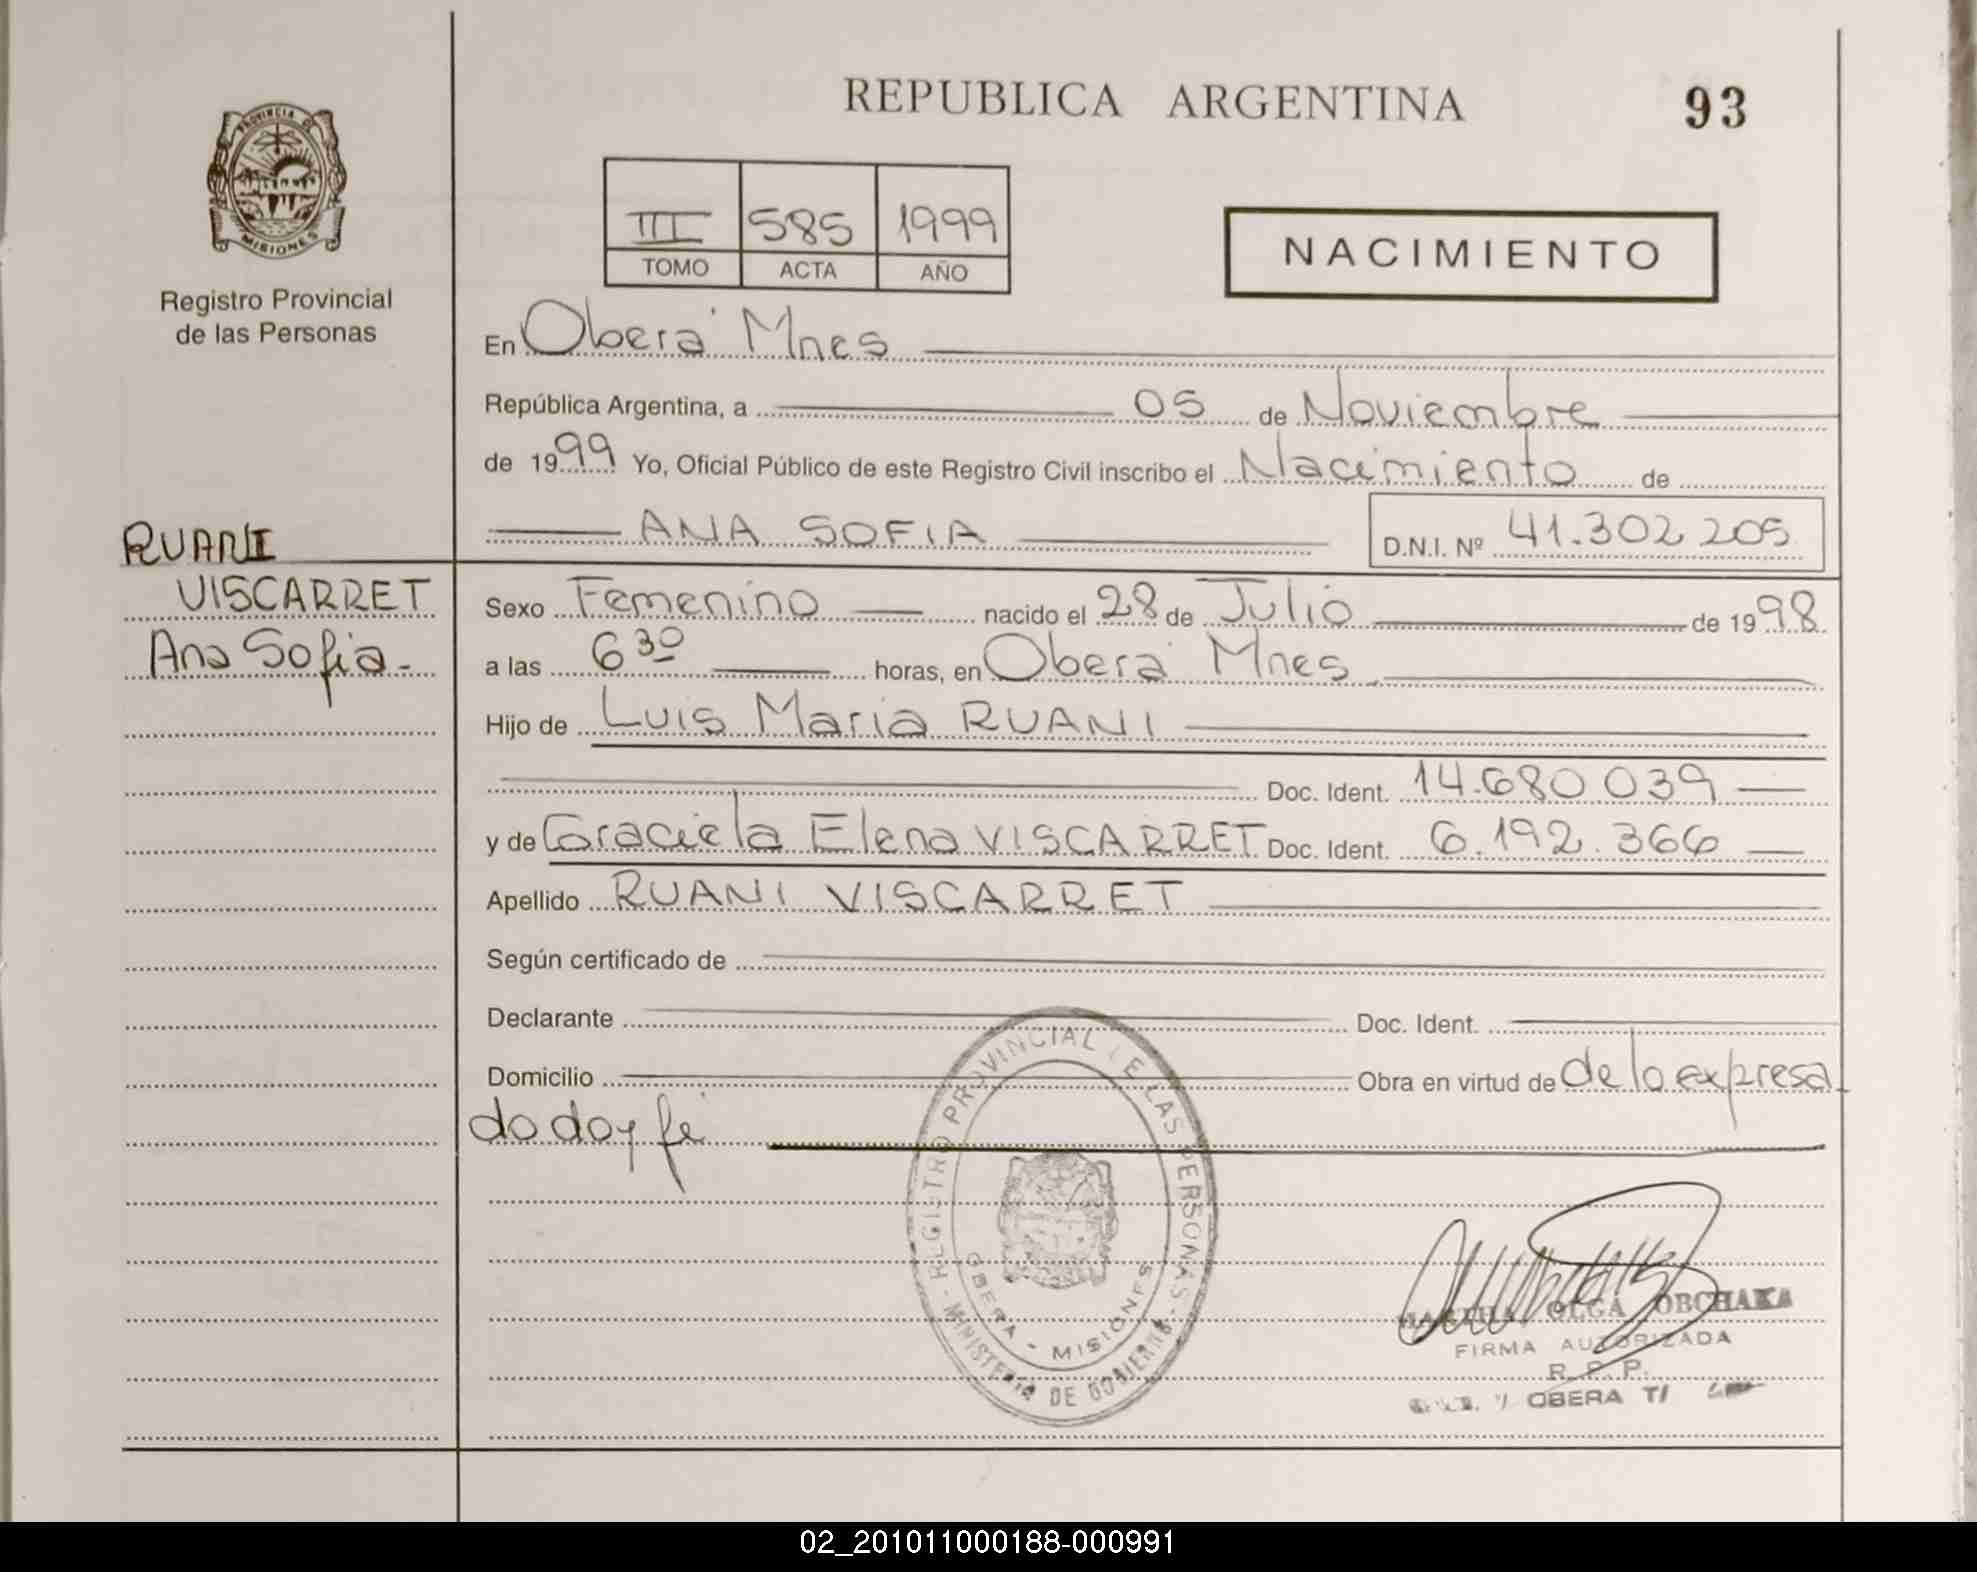 REPUBLICA ARGENTINA
93
PROVINCIA DE
MISIONES
Registro Provincial
de las Personas
III 585 1999
TOMO ACTA AÑO
NACIMIENTO
En Oberá Mnes
República Argentina, a 05 de Noviembre
de 1999 Yo, Oficial Público de este Registro Civil inscribo el Nacimiento de
ANA SOFIA D.N.I. Nº 41.302 205
RUANI
VISCARRET
Ana Sofia.-
Sexo Femenino nacido el 28 de Julio de 1998
a las 6 30 horas, en Oberá Mnes
Hijo de Luis Maria RUANI
Doc. Ident. 14.680 039
y de Graciela Elena VISCARRET Doc. Ident. 6.192.366
Apellido RUANI VISCARRET
Según certificado de
Declarante Doc. Ident.
Domicilio Obra en virtud de de lo expresa
do doy fé
REGISTRO PROVINCIAL DE LAS PERSONAS - MINISTERIO DE GOBIERNO
OBERA - MISIONES
MARTHA OLGA OBCHAKA
FIRMA AUTORIZADA
R. P. P.
OBERA
02_201011000188-000991